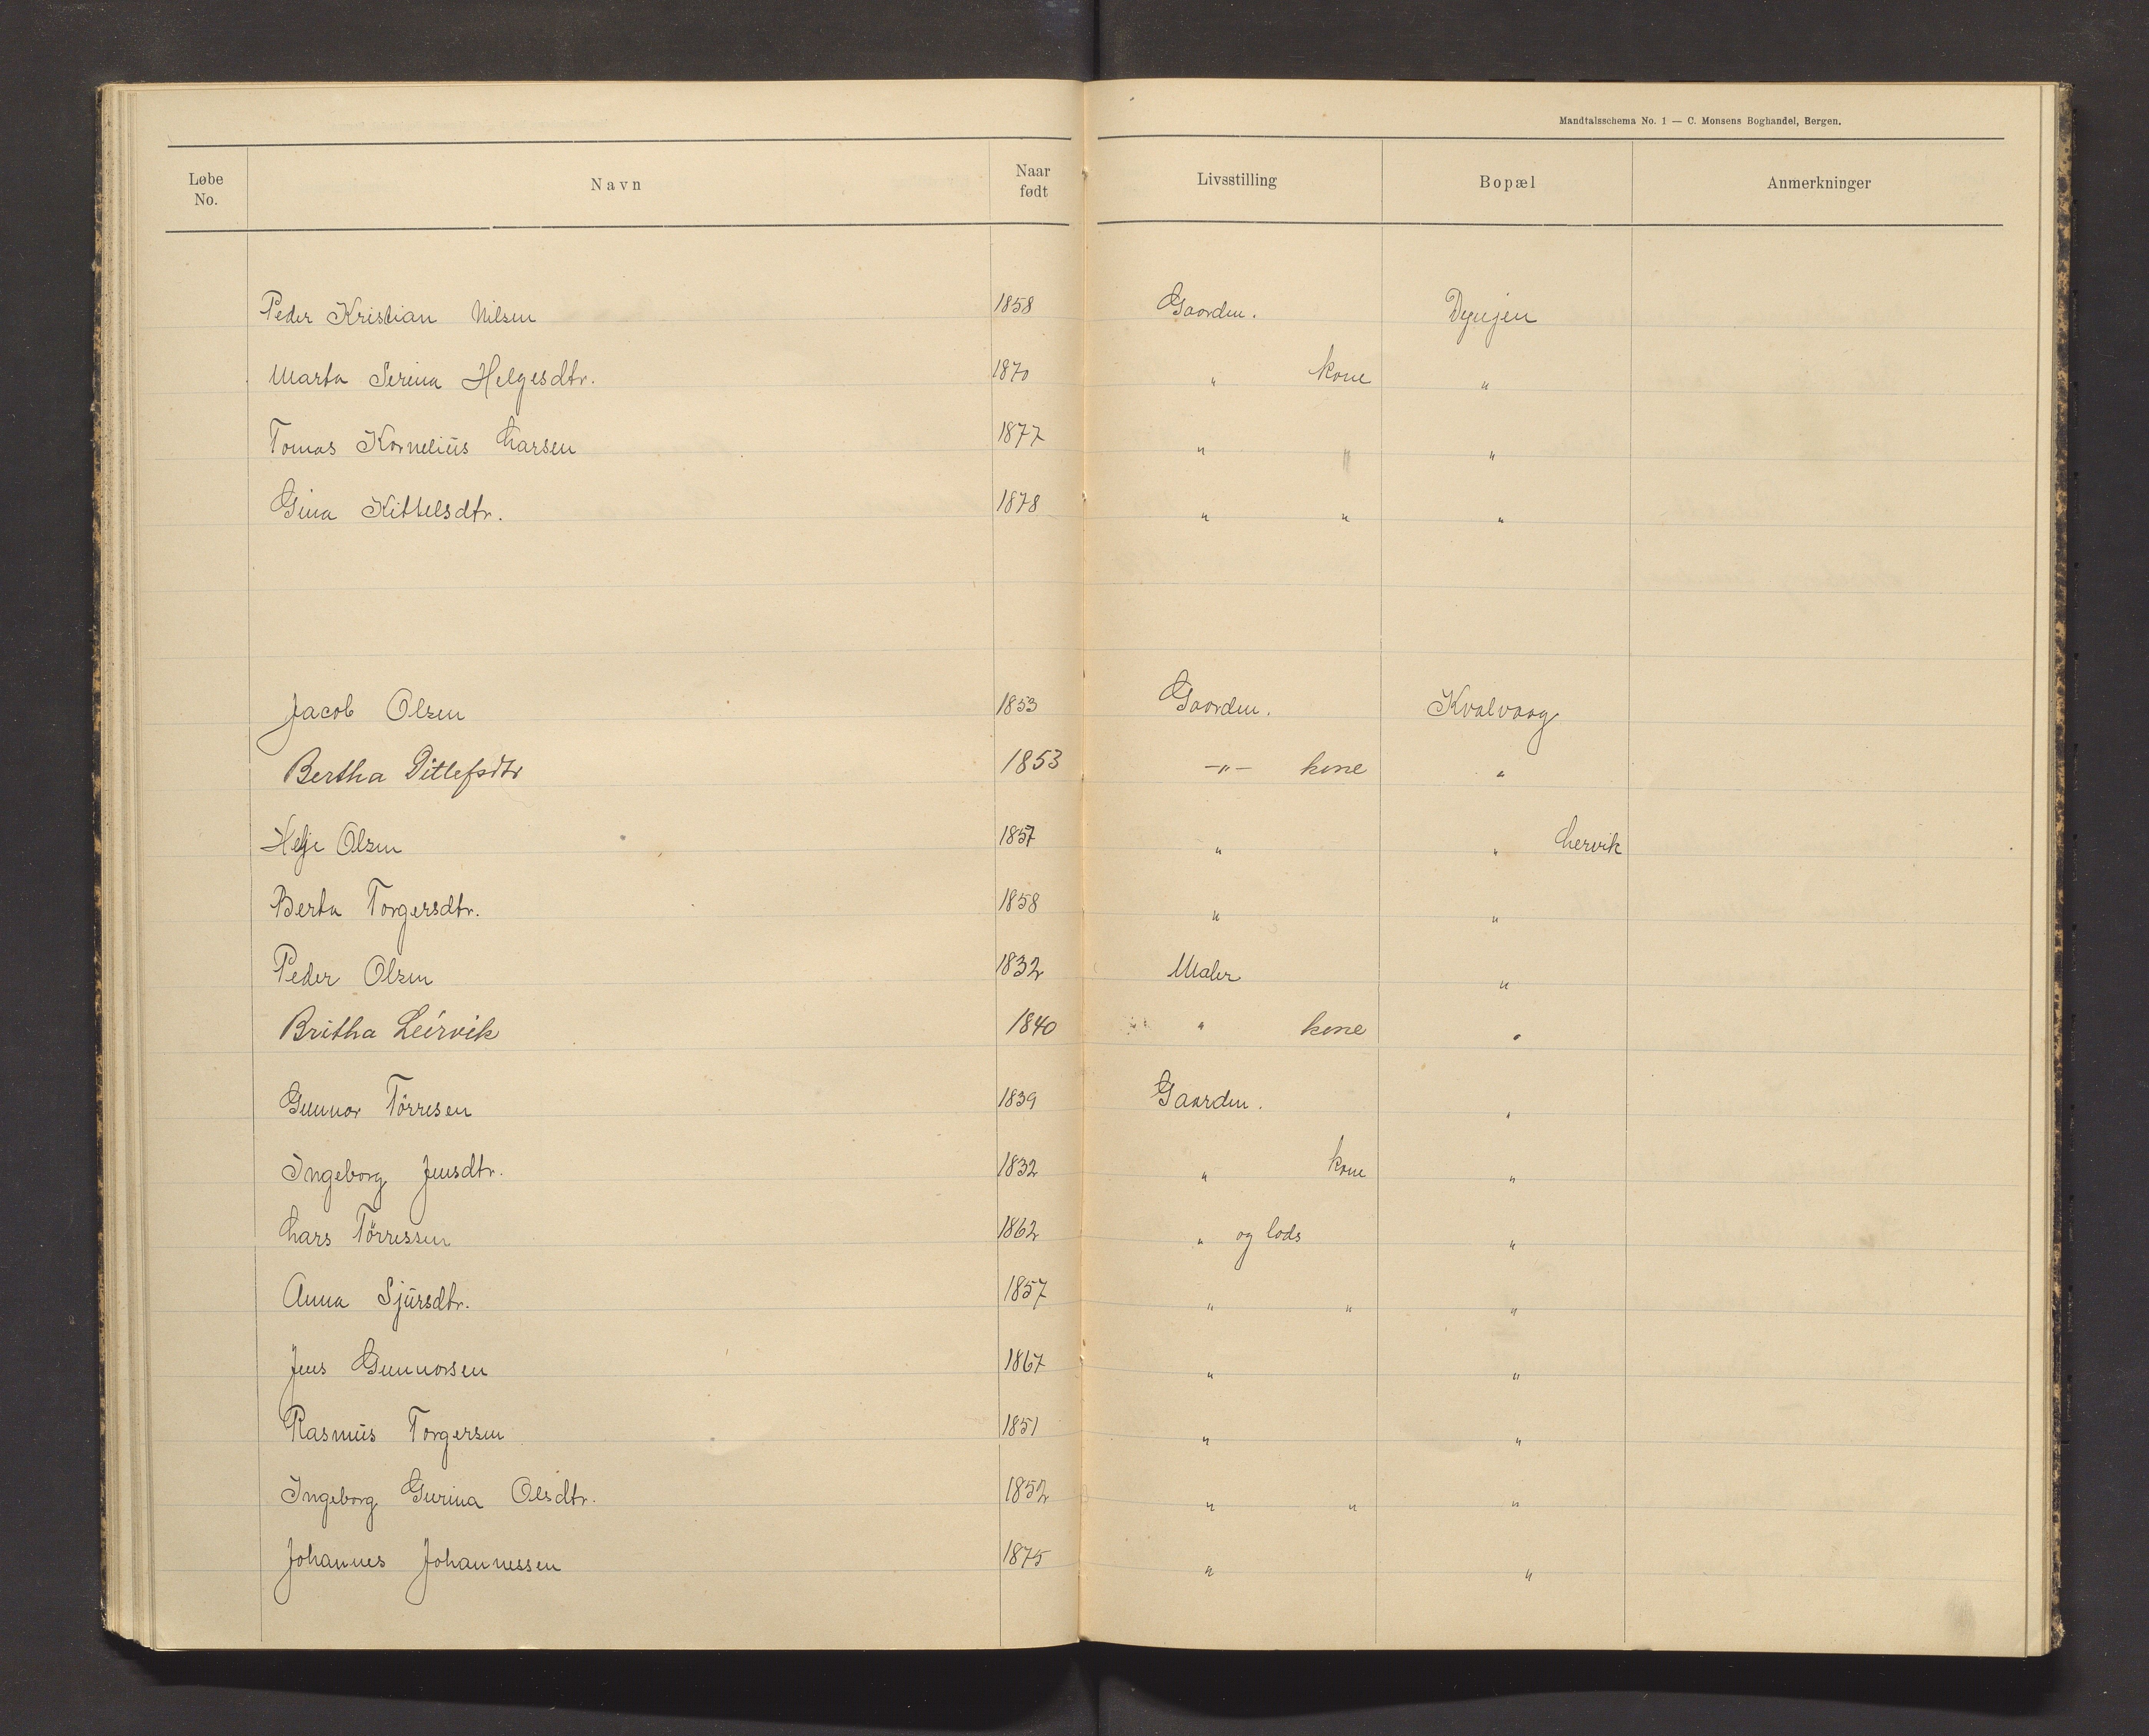 Mandtalsschema No. 1 — C. Monsens Boghandel, Bergen.
Løbe No. Navn Naar født Livsstilling Bopæl Anmerkninger
Peder Kristian Nilsen 1858 Gaardm. Dynjen
Marta Serina Helgesdtr. 1870 " kone "
Tomas Kornelius Larsen 1877 " " "
Gina Kittelsdtr. 1878 " " "
Jacob Olsen 1853 Gaardm. Kvalvaag
Bertha Ditlefsdtr 1853 -"- kone "
Helje Olsen 1857 " " Lervik
Berta Torgersdtr. 1858 " "
Peder Olsen 1832 Maler "
Britha Leirvik 1840 " kone "
Gunnar Törresen 1839 Gaardm. "
Ingeborg Jensdtr. 1832 " kone "
Lars Törressen 1862 " og lods "
Anna Sjursdtr. 1857 " " "
Jens Gunnarsen 1867 " "
Rasmus Torgersen 1851 " "
Ingeborg Gurina Olsdtr. 1852 " " "
Johannes Johannessen 1875 " "